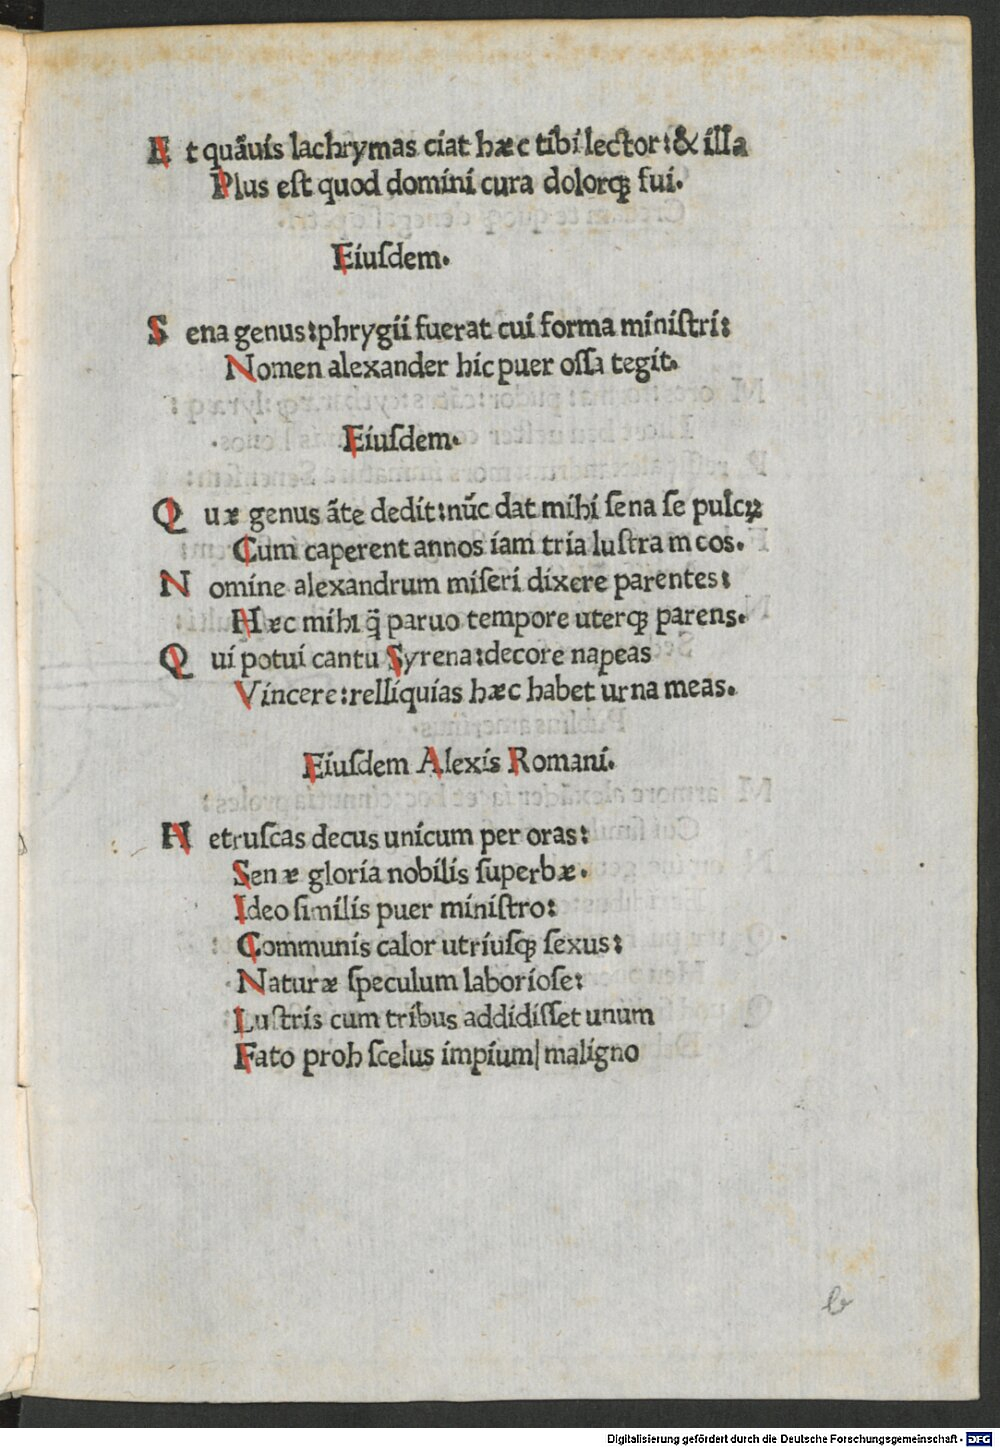 Et quãuis lachrymas ciat hæc tibi lector: & illa
Plus est quod domini cura dolorq; fui.
Eiuſdem.
Sena genus: phrygii fuerat cui forma miniſtri:
Nomen alexander hic puer oſſa tegit.
Eiuſdem.
Quæ genus ãte dedit: nũc dat mihi ſena ſepulcꝝ
Cum caperent annos iam tria luſtra meos.
Nomine alexandrum miſeri dixere parentes:
Hæc mihi q̃ paruo tempore uterq; parens.
Qui potui cantu Syrena: decore napeas
Vincere: relliquias hæc habet urna meas.
Eiuſdem Alexis Romani.
Hetruſcas decus unicum per oras:
Senæ gloria nobilis ſuperbæ.
Ideo ſimilis puer miniſtro:
Communis calor utriuſq; ſexus:
Naturæ ſpeculum laborioſe:
Luſtris cum tribus addidiſſet unum
Fato proh ſcelus impium| maligno
b
Digitalisierung gefördert durch die Deutsche Forschungsgemeinschaft - DFG